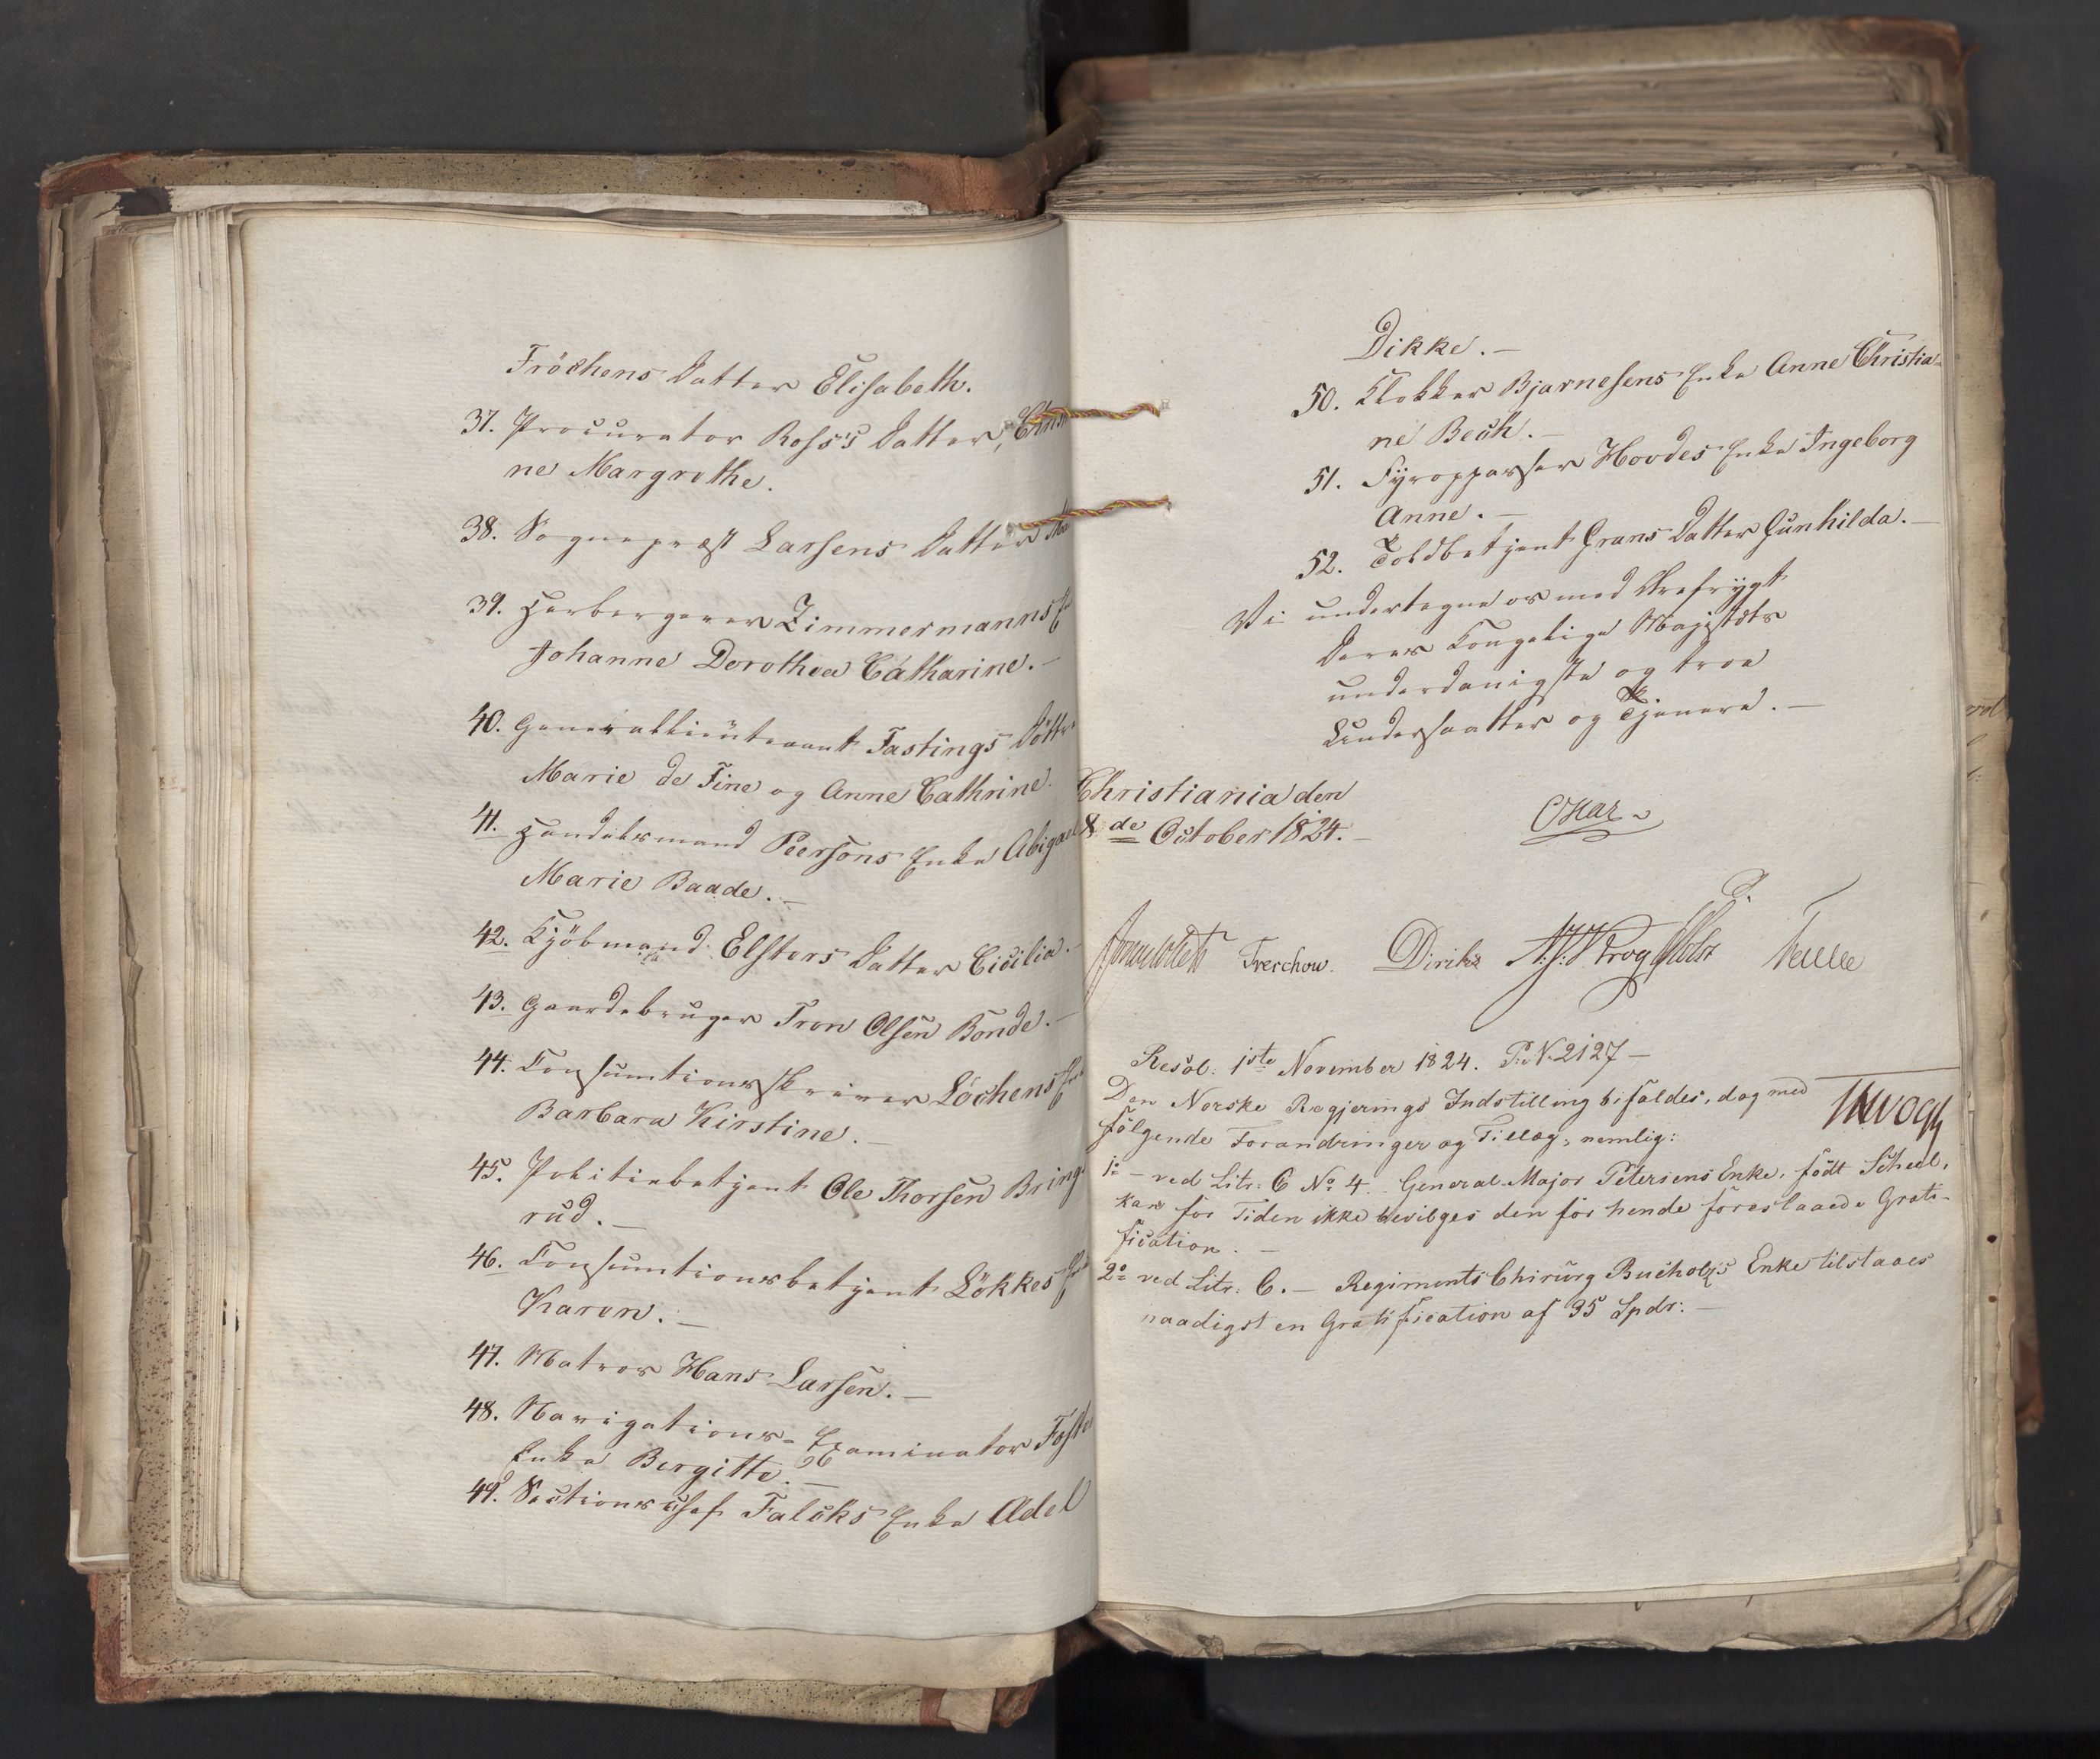 Fröchens Datter Elisabeth.
37. Procurator Ross's Datter,
ne Margrethe.
38. Sognepræst Larsens Datter
39. Herbergerer Zimmermanns
Johanne Dorothea Catharine.
40. Generallieutenant Fastings
Marie de Fine og Anne Cathrine.
41. Handelsmand Peersons Enke Abigael
Marie Baade.
42. Kjöbmand Elsters Datter Cicilia.
43. Gaardebruger Tron Olsen Bonde.
44. Consumtionsskriver Löchens
Barbara Kirstine.
45. Politiebetjent Ole Thorsen Bring-
rud.
46. Consumtionsbetjent Lökkes
Karen.
47. Matros Hans Larsen.
48. Navigations-Examinator
Enke Bergitte.
49. Sectionschef Falcks Enke Adel
Dikke.
50. Klokker Bjarnesens Enke Anne Christia-
ne Bech.
51. Fyropparser Hovdes Enke Ingeborg
Anne.
52. Toldbetjent Grans Datter Gunhilda.
Vi undertegne os med Ærefrygt
Deres Kongelige Majestæts
underdanigste og troe
Undersaatter og Tjenere.
Christiania den
8de October 1824.
Oscar
Treschow. Diriks
Resol: 1ste November 1824. P: N. 2127
Den Norske Regjerings Indstilling bifaldes, dog med
følgende Forandringer og Tillæg, nemlig:
1o ved Litr: C No 4. General-Major Petersens Enke, födt Scheel,
kan for Tiden ikke bevilges den for hende foreslaaede Grati-
fication.
2o ved Litr: C. Regiments Chirurg Bucholz's Enke tilstaaes
naadigst en Gratification af 35 Spdr: